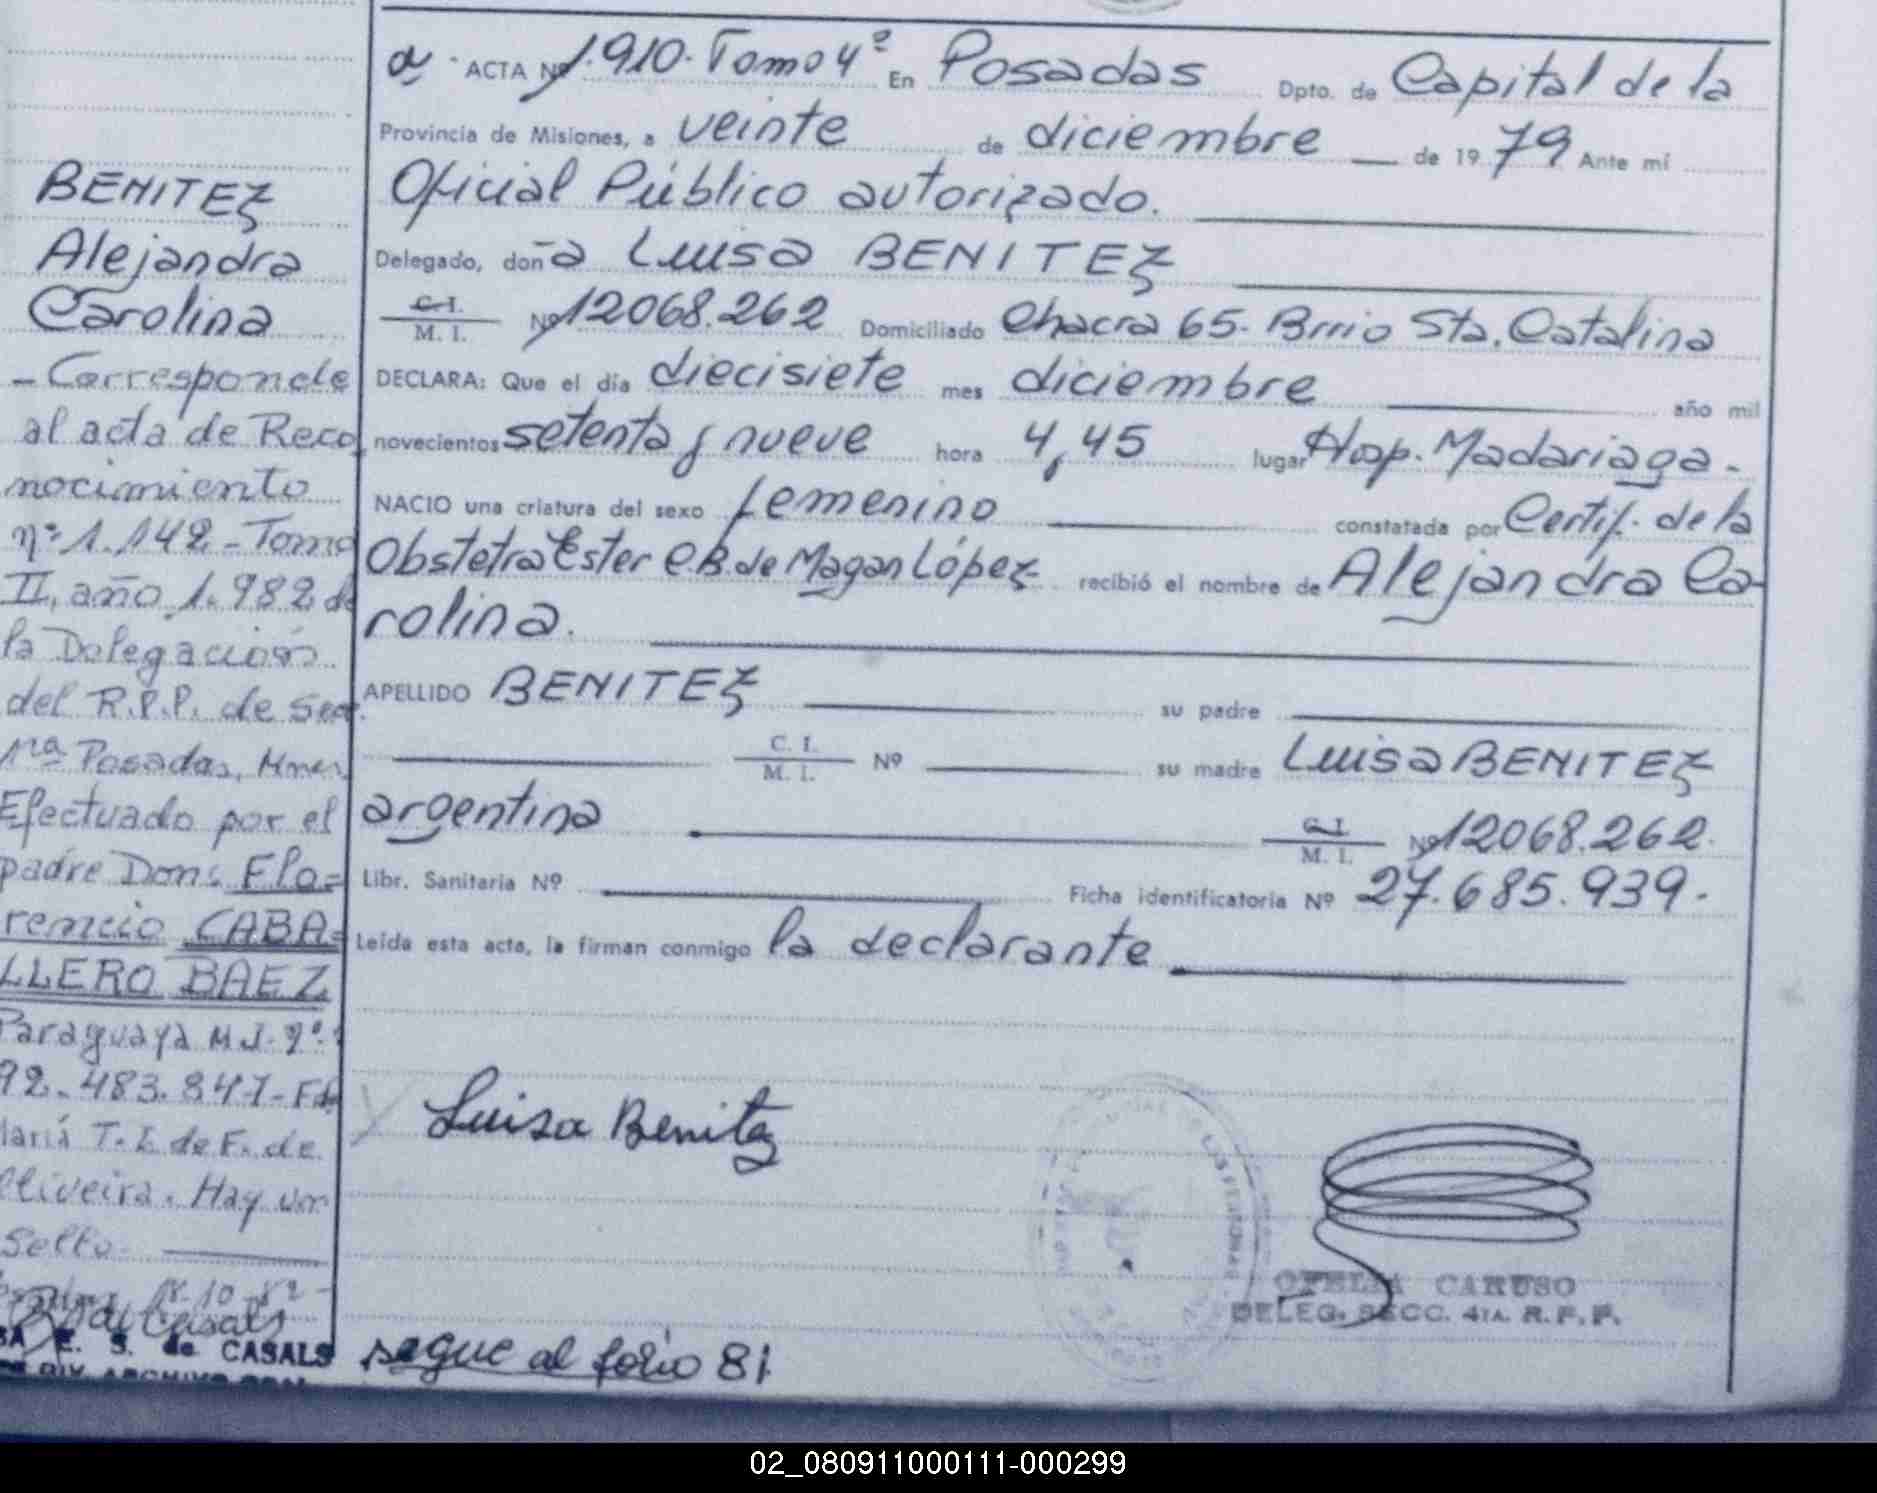 BENITEZ
Alejandra
Carolina
- Corresponde
al acta de Reco
nocimiento
nº 1.142 - Tomo
II, año 1.982 de
la Delegación
del R.P.P. de Sec.
1ra Posadas, Mnes
Efectuado por el
padre Don: Flo=
rencio CABA=
LLERO BAEZ
Paraguaya M.I. Nº
92.483.847 - Fdo
María T. I. de F. de
Oliveira. Hay un
Sello.
18-10-82
E. S. de CASALS
DIV. ARCHIVO GRAL
ACTA Nº 1.910. Tomo 4º En Posadas Dpto. de Capital de la
Provincia de Misiones, a veinte de diciembre de 1979 Ante mí
Oficial Público autorizado.
Delegado, doña Luisa BENITEZ
C. I. / M. I. Nº 12068.262 Domiciliado Chacra 65. Brrio Sta. Catalina
DECLARA: Que el día diecisiete mes diciembre año mil
novecientos setenta y nueve hora 4,45 lugar Hosp. Madariaga.
NACIO una criatura del sexo femenino constatada por Certif. de la
Obstetra Ester C.B. de Magan López recibió el nombre de Alejandra Ca-
rolina.
APELLIDO BENITEZ su padre
C. I. / M. I. Nº su madre Luisa BENITEZ
argentina C. I. / M. I. Nº 12068.262.
Libr. Sanitaria Nº Ficha identificatoria Nº 27.685.939.
Leída esta acta, la firman conmigo la declarante
Luisa Benitez
OFELIA CARUSO
DELEG. SECC. 4TA. R.P.P.
segue al folio 81
02_080911000111-000299